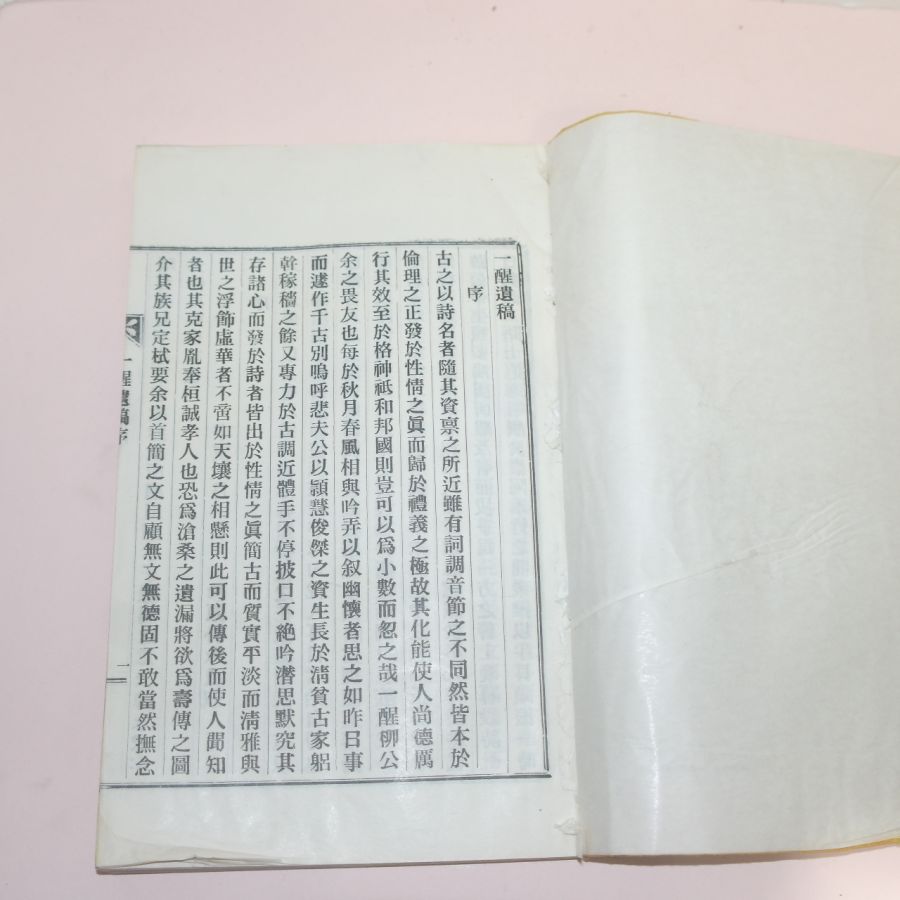 一醒遺稿
序
古之以詩名者隨其資稟之所近雖有詞調音節之不同然皆本於
倫理之正發於性情之眞而歸於禮義之極故其化能使人尚德厲
行其效至於格神祗和邦國則豈可以爲小數而忽之哉一醒柳公
余之畏友也每於秋月春風相與吟弄以叙幽懷者思之如昨日事
而遽作千古別嗚呼悲夫公以頴慧俊傑之資生長於淸貧古家躬
幹稼穡之餘又專力於古調近體手不停披口不絶吟潛思默究其
存諸心而發於詩者皆出於性情之眞簡古而質實平淡而淸雅與
世之浮飾虛華者不啻如天壤之相懸則此可以傳後而使人聞知
者也其克家胤奉桓誠孝人也恐爲滄桑之遺漏將欲爲壽傳之圖
介其族兄定栻要余以首簡之文自顧無文無德固不敢當然撫念
一醒遺稿序
一